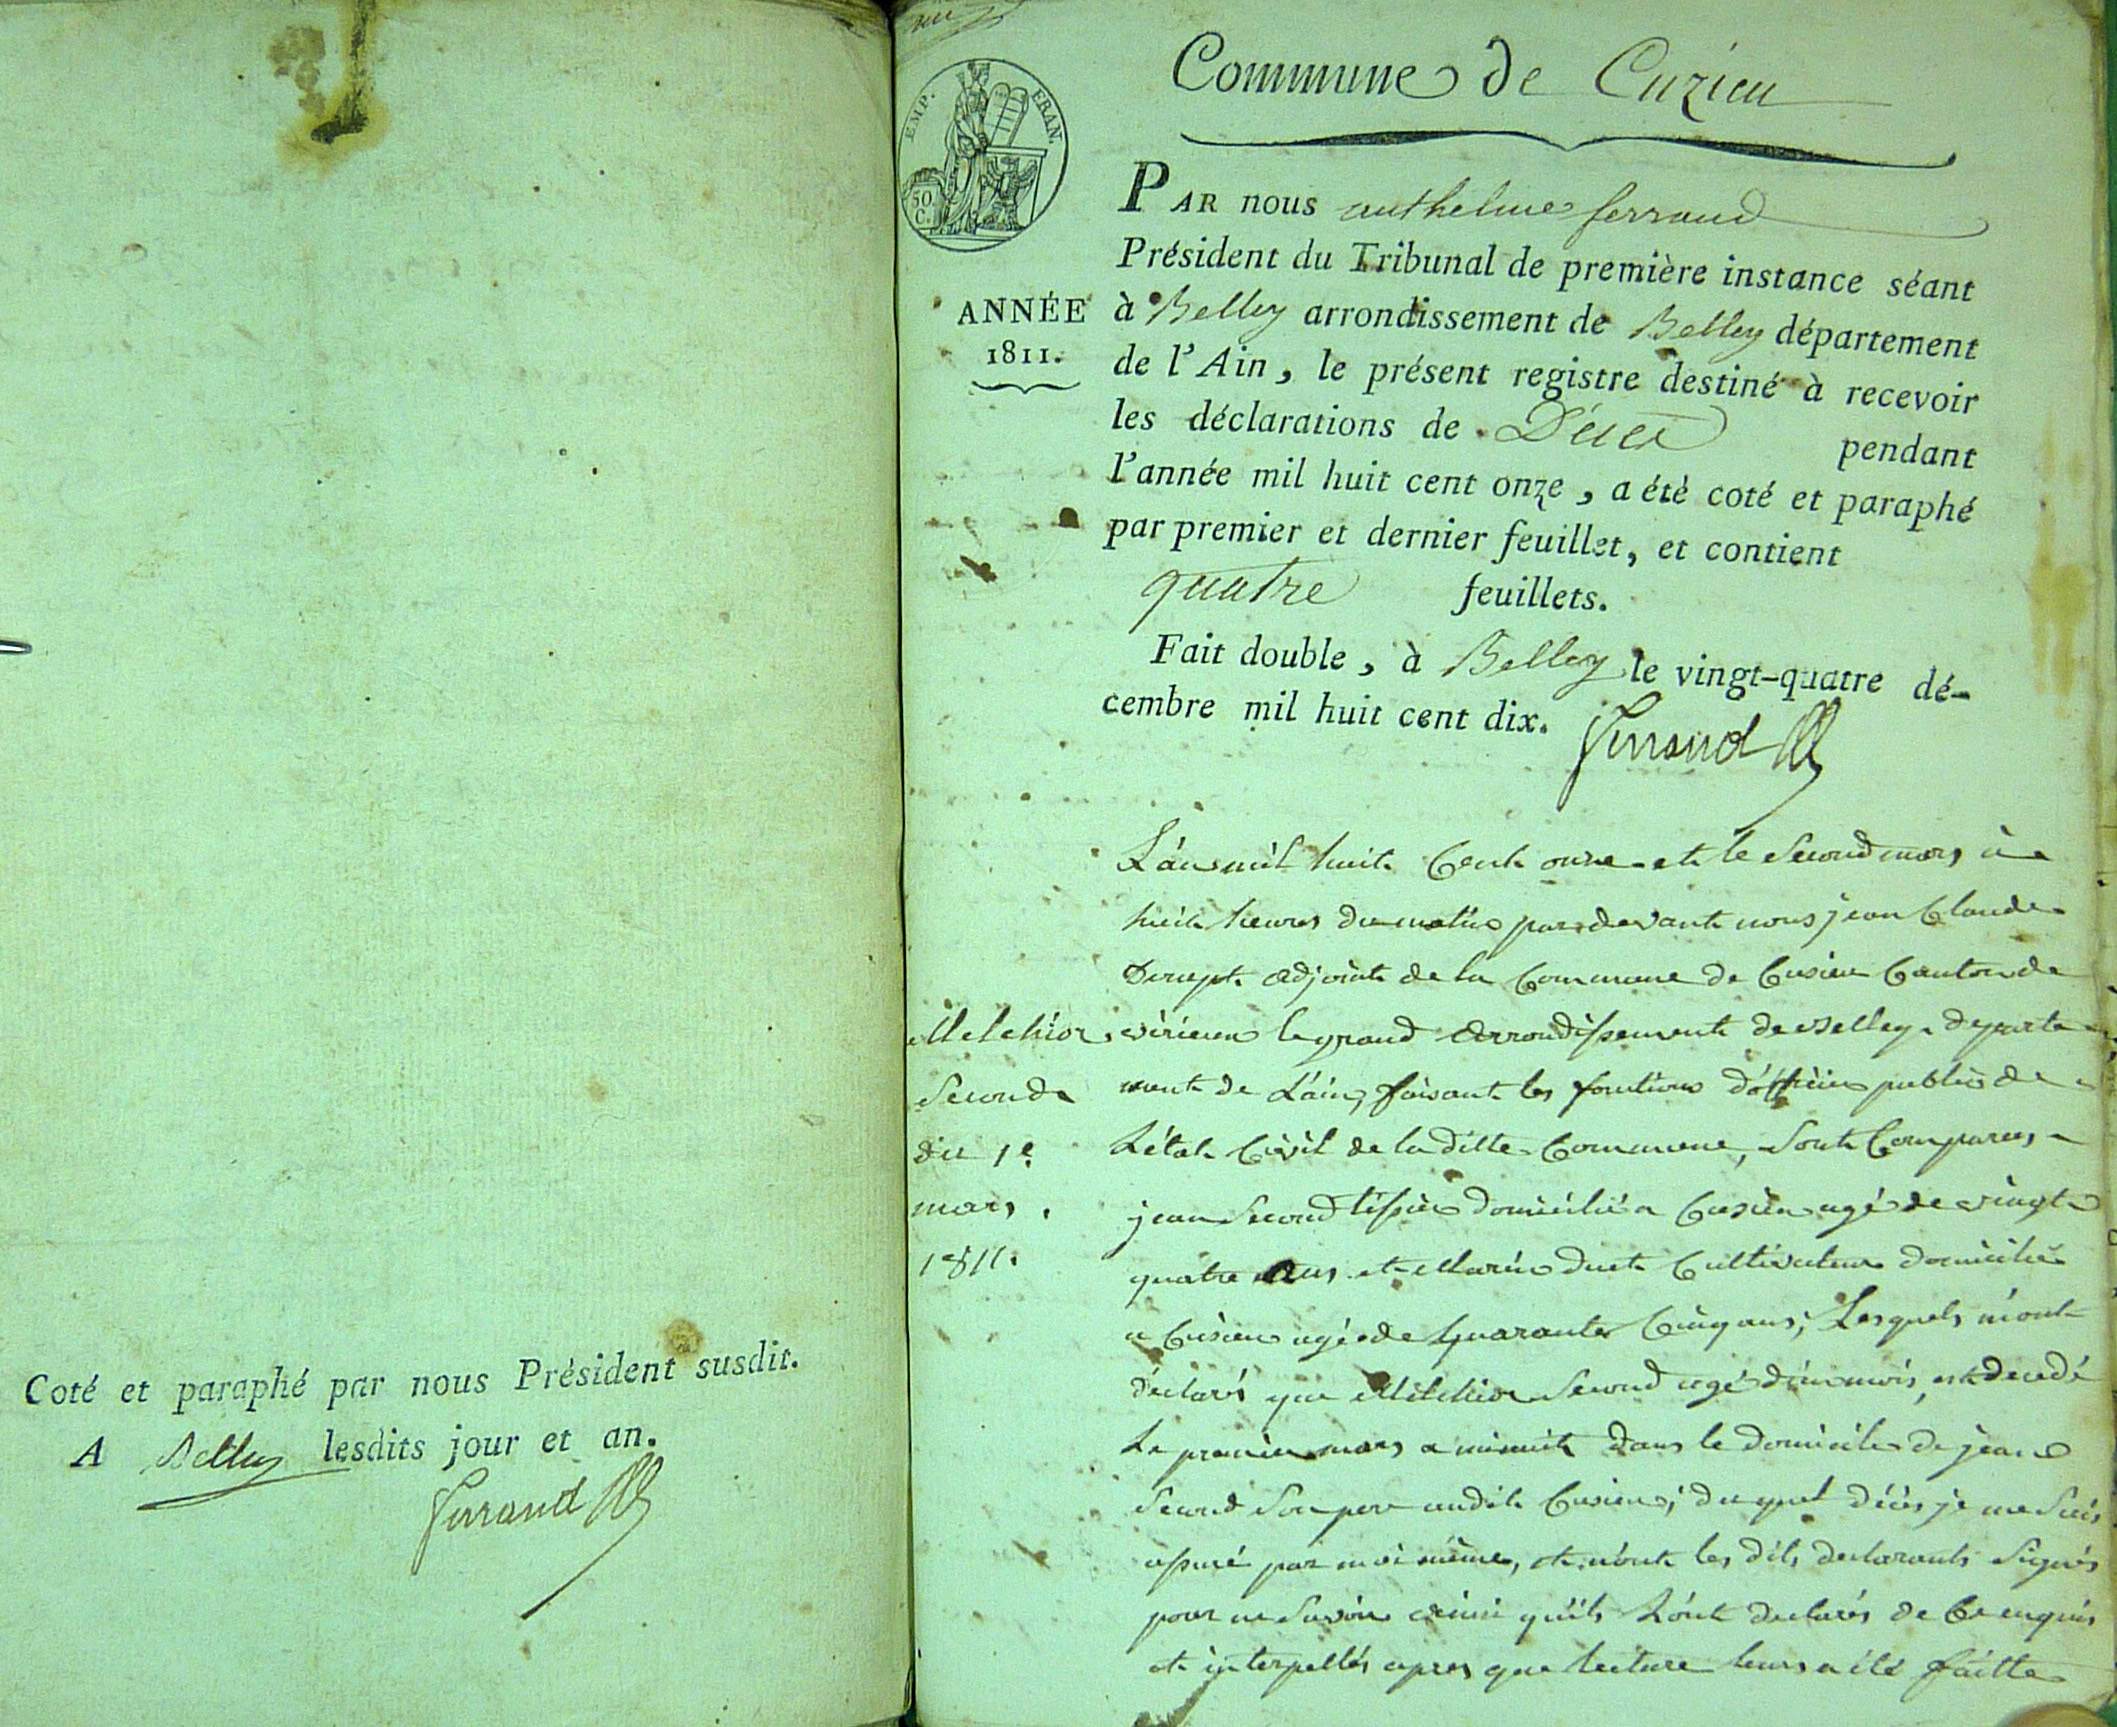 Coté et paraphé par nous Président susdit.
A Belley lesdits jour et an.
Ferrand
Commune de Cuzieu
EMP. FRAN.
50 C.
ANNÉE
1811.
PAR nous anthelme ferrand
Président du Tribunal de première instance séant
à Belley arrondissement de Belley département
de l'Ain, le présent registre destiné à recevoir
les déclarations de Décès pendant
l'année mil huit cent onze, a été coté et paraphé
par premier et dernier feuillet, et contient
quatre feuillets.
Fait double, à Belley le vingt-quatre dé-
cembre mil huit cent dix.
Ferrand
Melchior
Second
du 1e
mars
1811.
L'an mil huit Cent onze et le Second mars à
huit heures du matin pardevant nous jean Claude
adjoint de la Commune de Cusieu Canton de
virieux le grand arrondissement de Belley departe
ment de L'ain, faisant les fonctions d'officier public de
L'état Civil de la ditte Commune, Sont Comparus
jean Second tissier domicilié a Cusieu agé de vingt
quatre ans et Marin duet Cultivateur domicilié
a Cusieu agé de Quarante Cinq ans, Lesquels m'ont
déclarés que Melchior Second agé d'un mois, est decedé
Le premier mars a minuit dans le domicile de jean
Second Son pere audit Cusieu; du quel décès je me Suis
assuré par moi même, et n'ont les dits declarants Signés
pour ne Savoir ainsi qu'ils L'ont declarés de Ce enquis
et interpellés apres que lecture leurs a été faitte